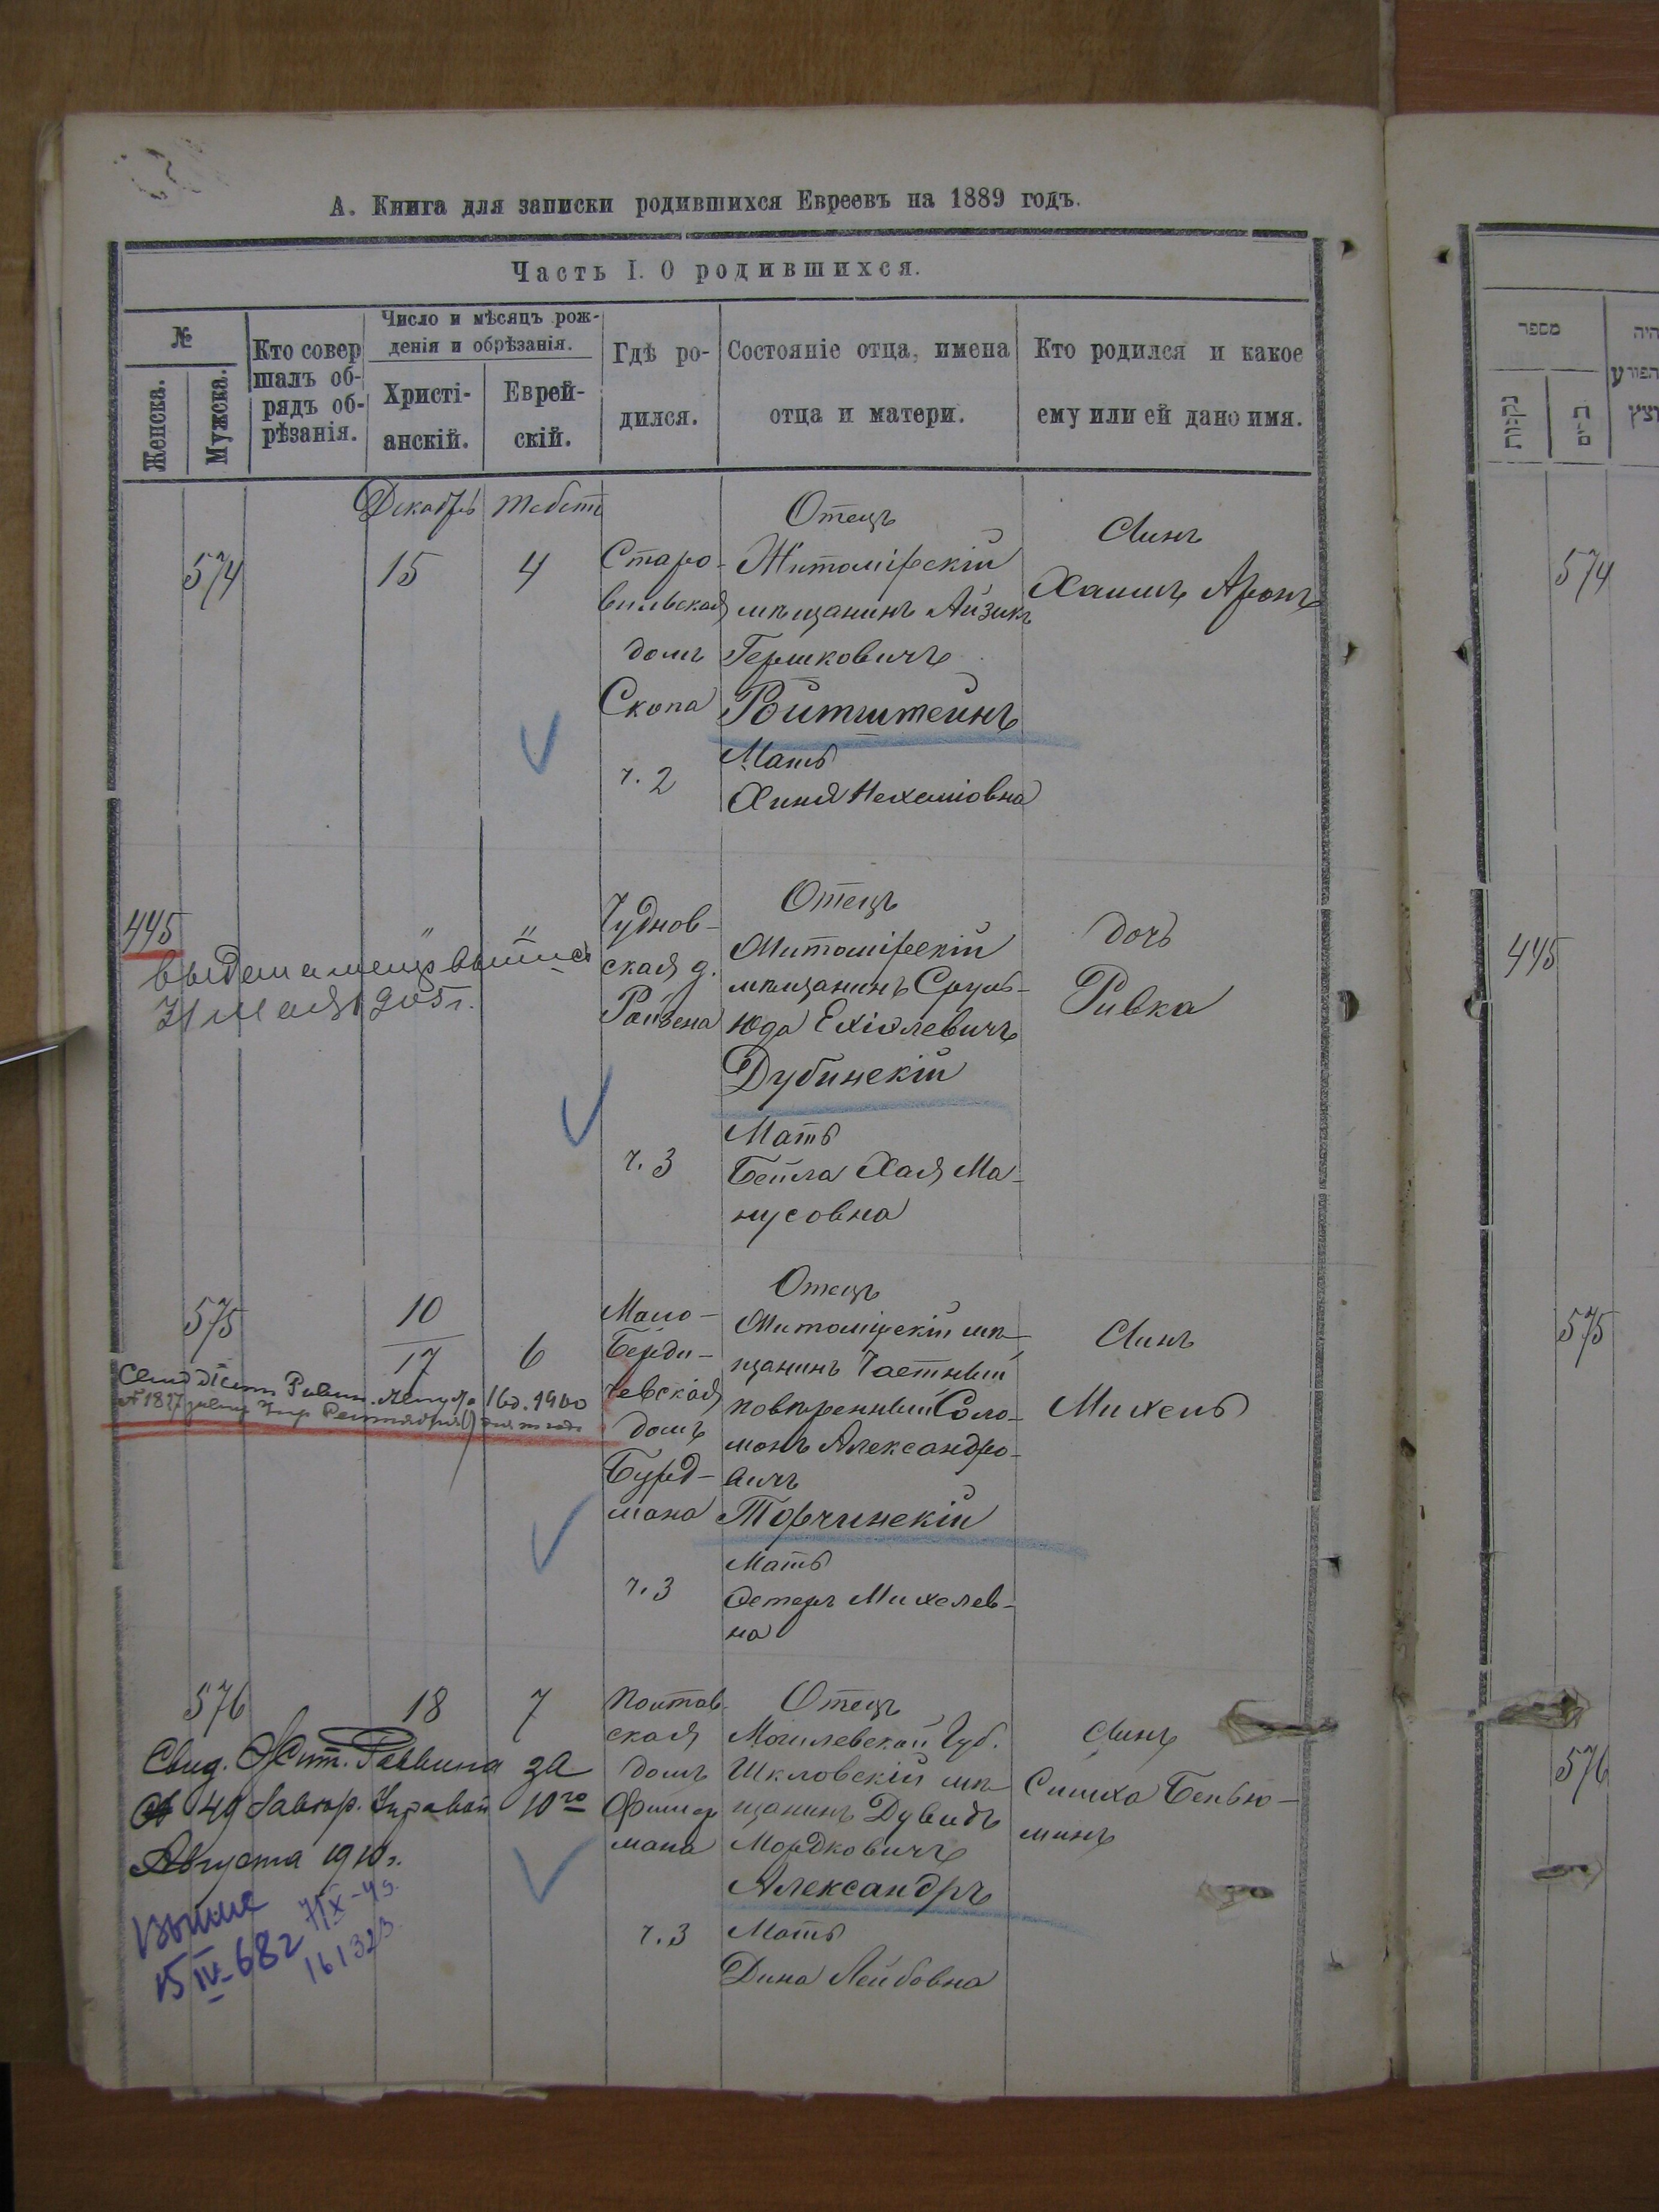 А. Книга для записки родившихся Евреевъ на 1889 годъ.
Часть I. О родившихся.
№
Женска.
Мужска.
Кто совер
шалъ об-
рядъ об-
рѣзанія.
Число и мѣсяцъ рож-
денія и обрѣзанія.
Христі-
анскій.
Еврей-
скій.
Гдѣ ро-
дился.
Состояніе отца, имена
отца и матери.
Кто родился и какое
ему или ей дано имя.
574
Декабрь
15
Тебетъ
4
Старо-
вильская
домъ
Скопа
ч. 2
Отецъ
Житомірскій
мѣщанинъ Айзикъ
Гершковичъ
Ройтштейнъ
Мать
Хиня Нехемiовна
Сынъ
Хаимъ Аронъ
445
"
"
31 мая 1905 г.
Чуднов-
ская д.
Ройзена
ч. 3
Отецъ
Житомірскій
мѣщанинъ Сруль-
Юда Ехіолевичъ
Дубинскій
Мать
Бейла Хая Ма-
нусовна
дочь
Ривка
575
10
17
6
1900
Мало-
Берди-
чевская
домъ
Бурд-
мана
ч. 3
Отецъ
Житомірскій мѣ-
щанинъ Частный
повѣренный Соло-
монъ Александро-
вичъ
Торчинскій
Мать
Эстеръ Михелев-
на
Сынъ
Михель
576
18
7
Свид. Жит. Раввина за
№ 49 10го
Августа 1910 г.
15 IV-68 г
7/X-49.
161323
ская
домъ
Фишер
мана
ч. 3
Отецъ
Могилевской Губ.
Шкловскій мѣ-
щанинъ Дувидъ
Мордковичъ
Александръ
Мать
Дина Лейбовна
Сынъ
Симха Беньо-
минъ
מספר
נקבות
574
445
575
576